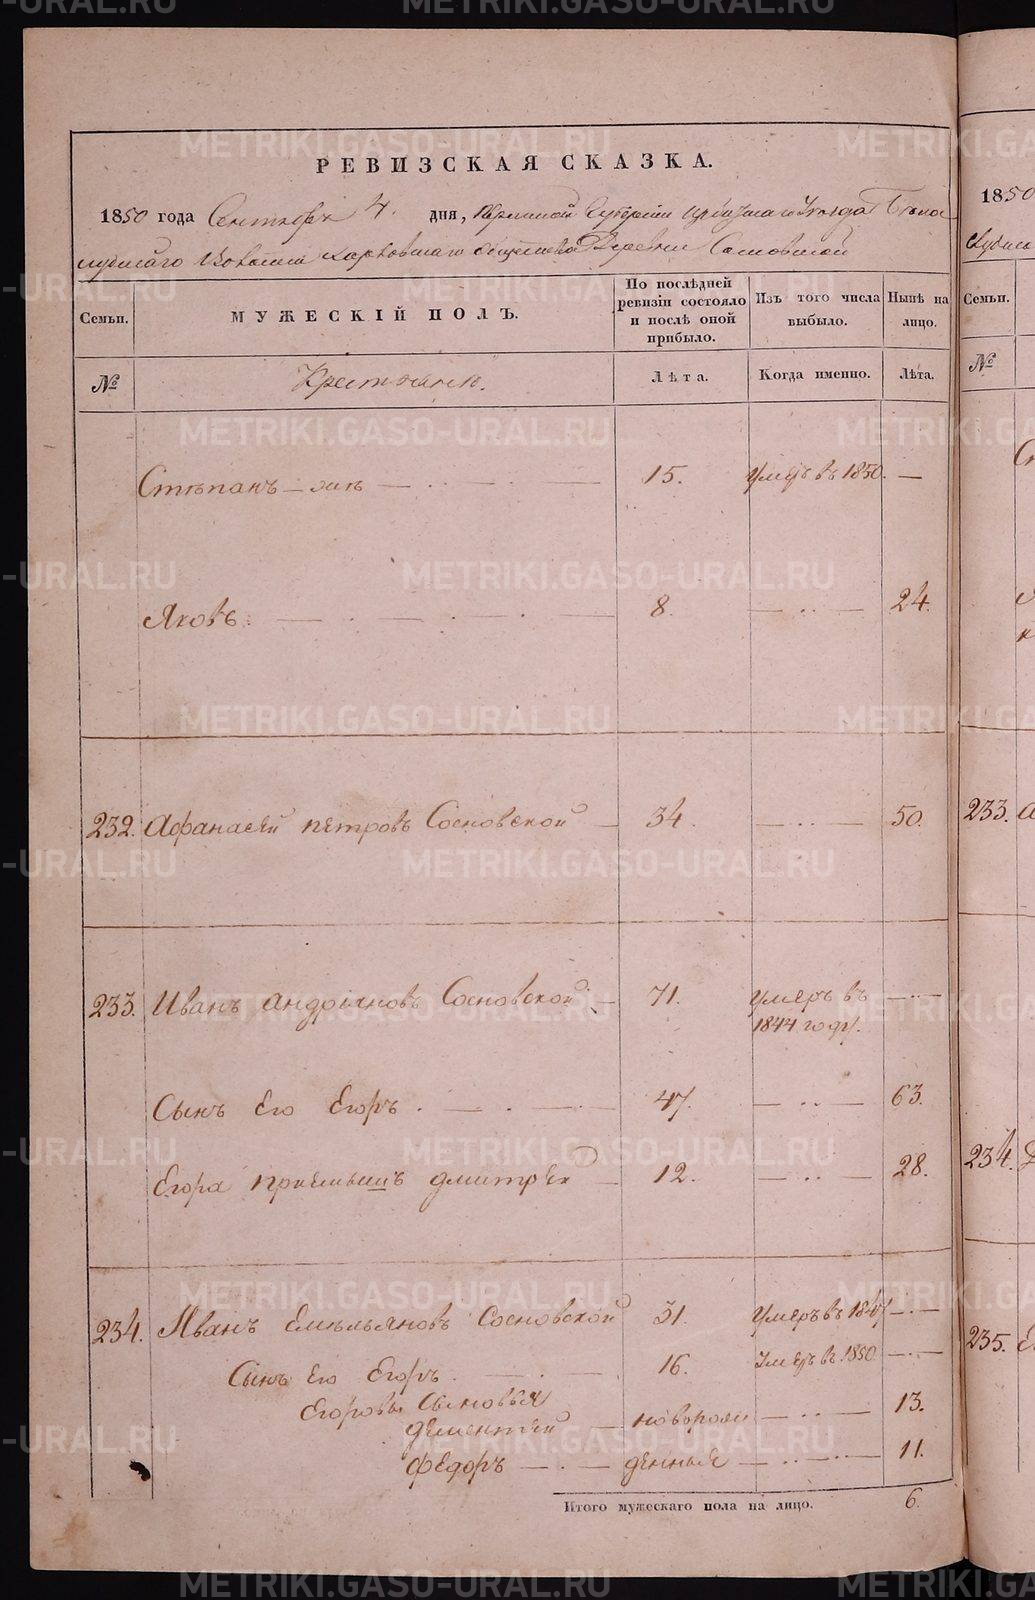 РЕВИЗСКАЯ СКАЗКА.
1850 года Сентября 4. дня, Пермской Губернии Ирбитскаго Уезда Бело
слудскаго Волости Харловскаго общества Деревни
Семьи.
МУЖЕСКІЙ ПОЛЪ.
По послѣдней ревизіи состояло и послѣ оной прибыло.
Изъ того числа выбыло.
Нынѣ на лицо.
№
Крестьяне.
Лѣта.
Когда именно.
Лѣта.
Степанъ — — 15. умеръ въ 1850. —
Яковъ. — 8. — 24.
232. Афанасей петровъ Сосновской — 34. — 50.
233. Иванъ андріяновъ Сосновской — 71. умеръ въ 1844 году. —
Сынъ Его Егоръ. — 47. — 63.
Егора приемышъ дмитрей — 12. — 28.
234. Иванъ Емельяновъ Сосновской 31. Умеръ въ 1847 —
Сынъ Его Егоръ. — 16. Умеръ въ 1850 —
Егоровы Сыновья
дементей — новорож — 13.
Федоръ — денные — 11.
Итого мужескаго пола на лицо. 6.
1850
Семьи.
№
233.
234.
235.
METRIKI.GASO-URAL.RU